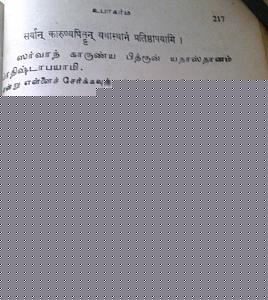 உபாகர்ம
217
सर्वान् कारुण्यपितॄन् यथास्थानं प्रतिष्ठापयामि ।
ஸர்வாந் காருண்ய பித்ரூன் யதாஸ்தானம்
ப்ரதிஷ்டாபயாமி.
என்னைச் சேர்க்கவும்